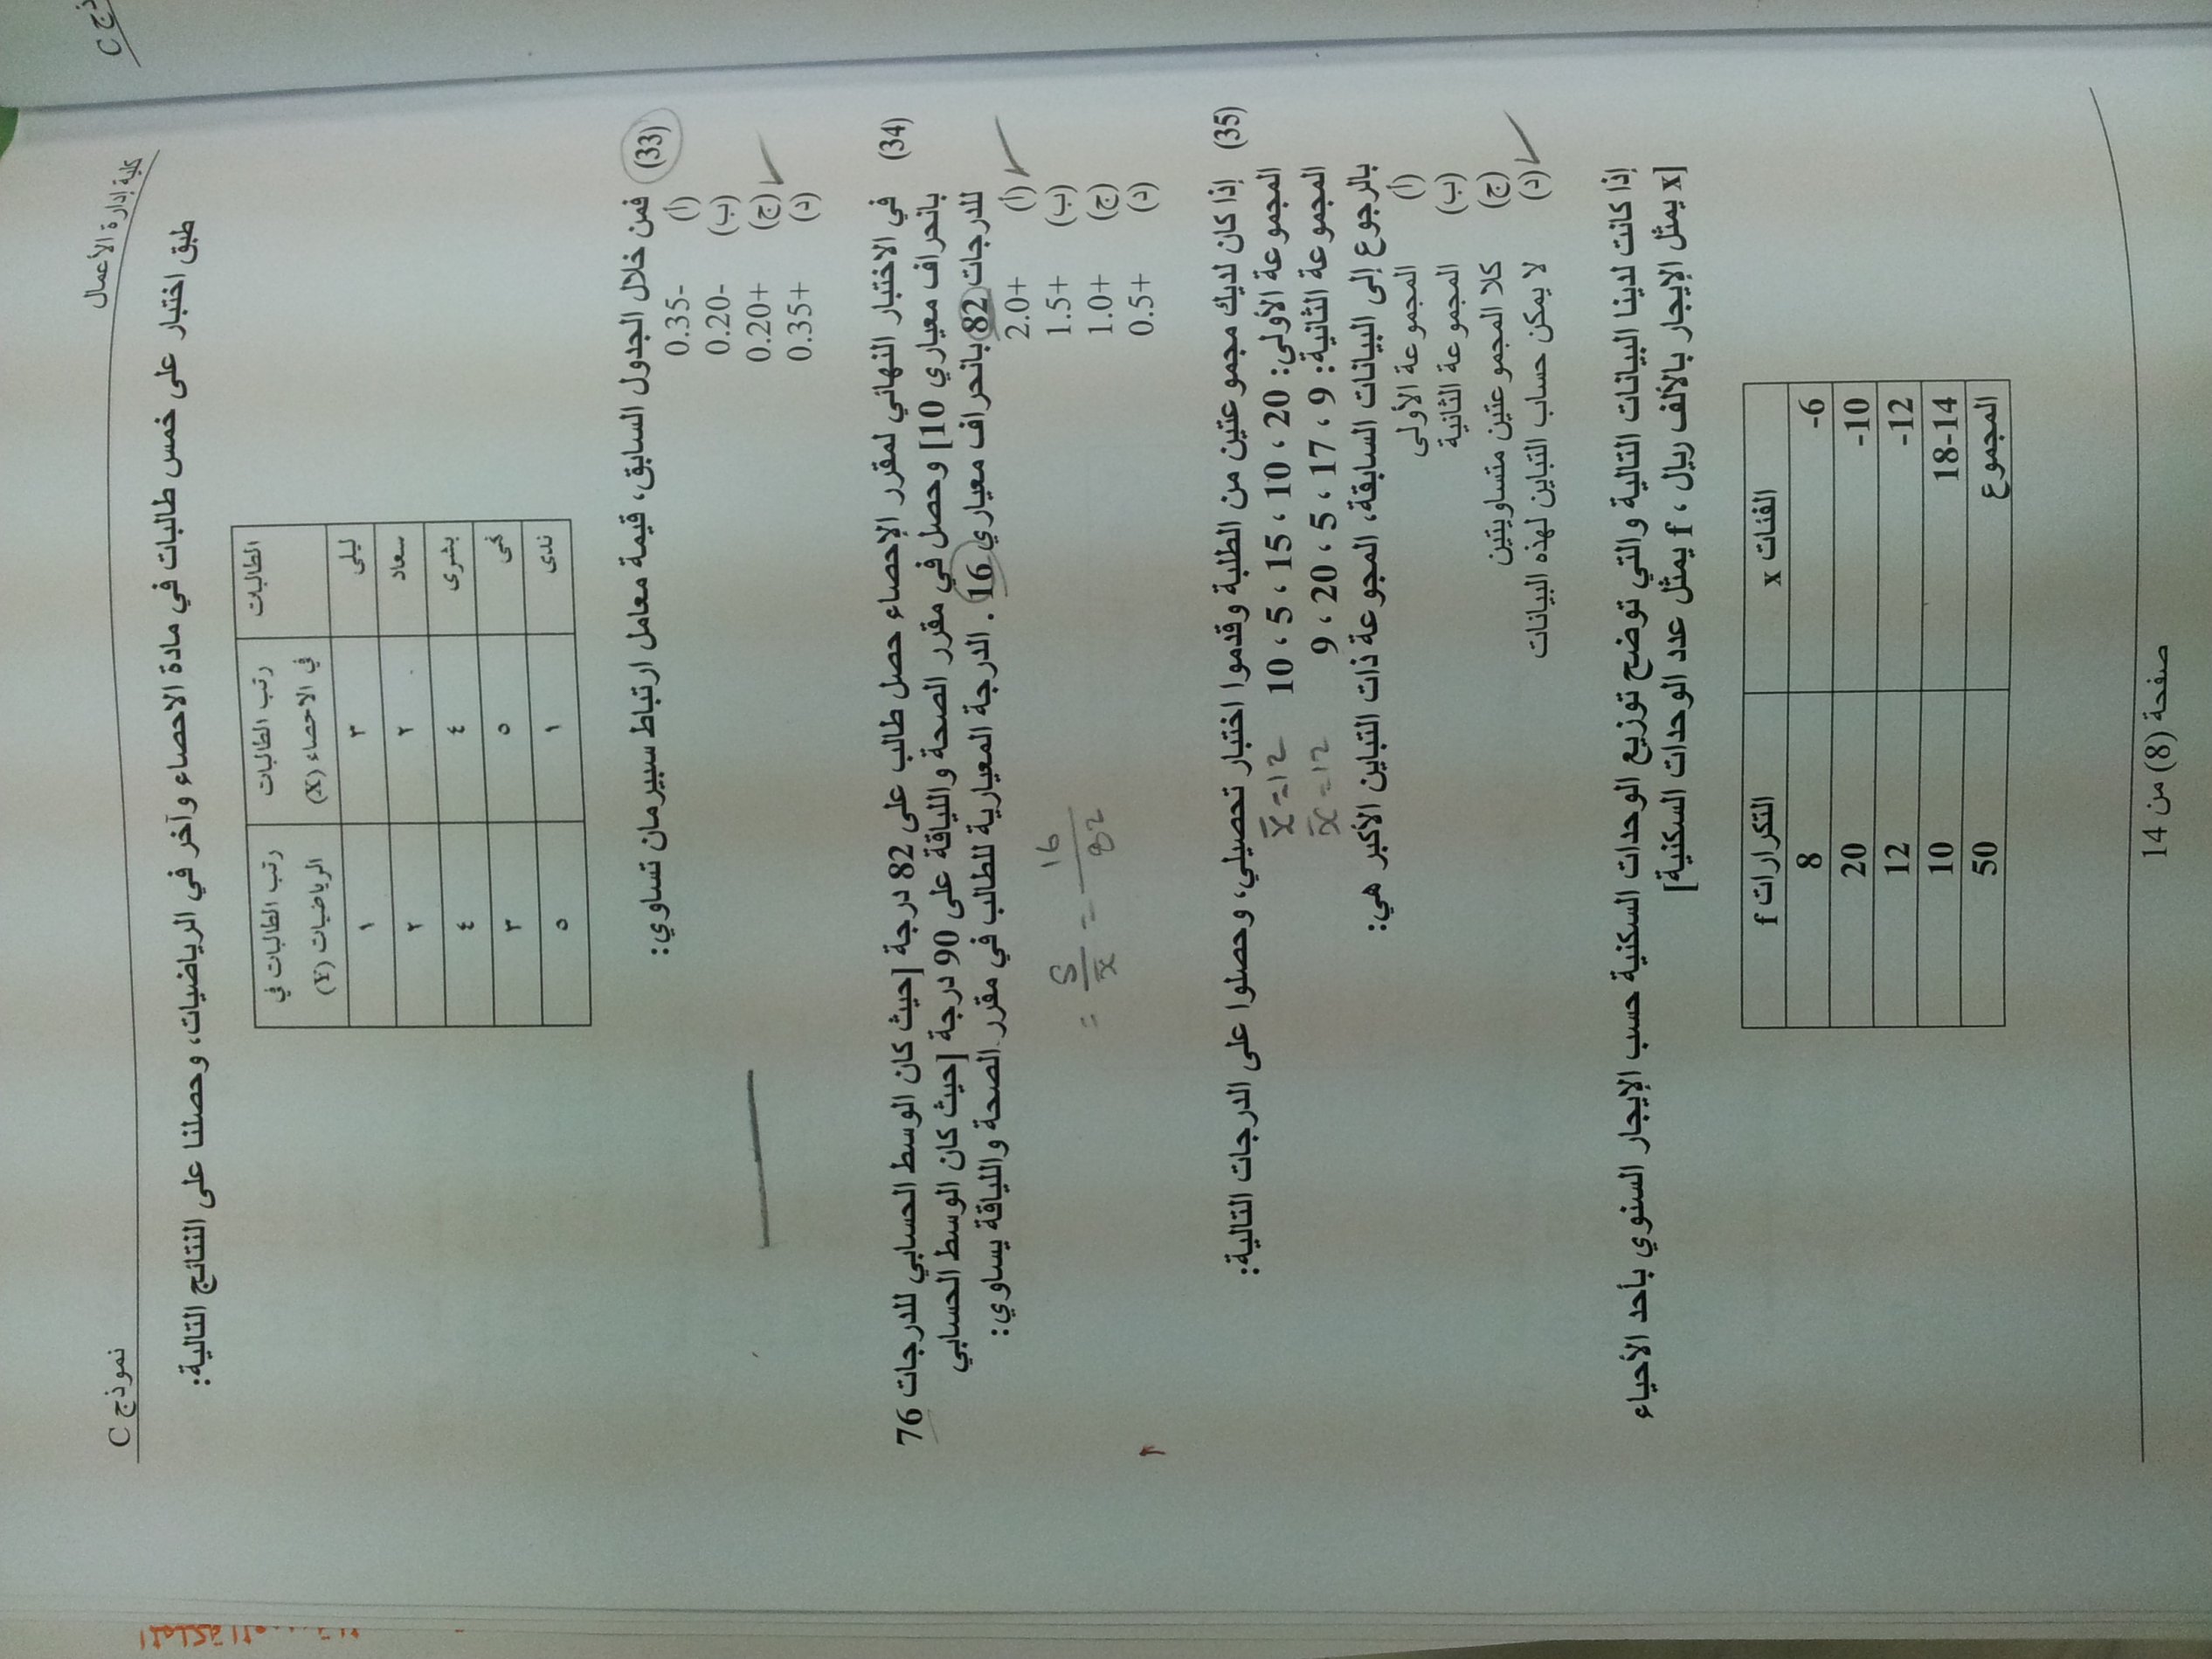 نموذج C
كلية إدارة الأعمال
طبق اختبار على خمس طالبات في مادة الاحصاء وآخر في الرياضيات، وحصلنا على النتائج التالية:
الطالبات | رتب الطالبات في الاحصاء (X) | رتب الطالبات في الرياضيات (Y)
ليلى | ٣ | ١
سعاد | ٢ | ٢
بشرى | ٤ | ٤
نهى | ٥ | ٣
ندى | ١ | ٥
(33) فمن خلال الجدول السابق، قيمة معامل ارتباط سبيرمان تساوي:
(أ) 0.35-
(ب) 0.20-
(ج) 0.20+
(د) 0.35+
(34) في الاختبار النهائي لمقرر الإحصاء حصل طالب على 82 درجة [حيث كان الوسط الحسابي للدرجات 76
بانحراف معياري 10] وحصل في مقرر الصحة واللياقة على 90 درجة [حيث كان الوسط الحسابي
للدرجات 82 بانحراف معياري 16. الدرجة المعيارية للطالب في مقرر الصحة واللياقة يساوي:
(أ) 2.0+
(ب) 1.5+
(ج) 1.0+
(د) 0.5+
= S/x̄ = 16/82
(35) إذا كان لديك مجموعتين من الطلبة وقدموا اختبار تحصيلي، وحصلوا على الدرجات التالية:
المجموعة الأولى: 20 ، 10 ، 15 ، 5 ، 10 x̄=12
المجموعة الثانية: 9 ، 17 ، 5 ، 20 ، 9 x̄=12
بالرجوع إلى البيانات السابقة، المجوعة ذات التباين الأكبر هي:
(أ) المجموعة الأولى
(ب) المجموعة الثانية
(ج) كلا المجموعتين متساويتين
(د) لا يمكن حساب التباين لهذه البيانات
إذا كانت لدينا البيانات التالية والتي توضح توزيع الوحدات السكنية حسب الإيجار السنوي بأحد الأحياء
[x يمثل الإيجار بالألف ريال ، f يمثل عدد الوحدات السكنية]
الفئات x | التكرارات f
6- | 8
10- | 20
12- | 12
18-14 | 10
المجموع | 50
صفحة (8) من 14